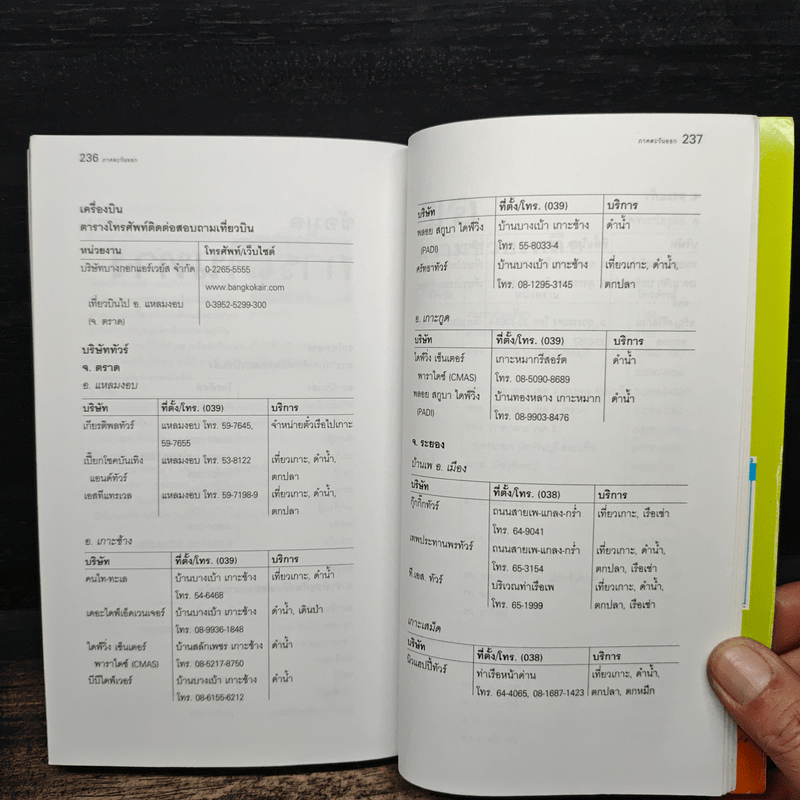 236 ภาคตะวันออก
เครื่องบิน
ตารางโทรศัพท์ติดต่อสอบถามเที่ยวบิน
หน่วยงาน โทรศัพท์/เว็บไซต์
บริษัทบางกอกแอร์เวย์ส จำกัด 0-2265-5555
www.bangkokair.com
เที่ยวบินไป อ. แหลมงอบ 0-3952-5299-300
(จ. ตราด)
บริษัททัวร์
จ. ตราด
อ. แหลมงอบ
บริษัท ที่ตั้ง/โทร. (039) บริการ
เกียรติพลทัวร์ แหลมงอบ โทร. 59-7645, จำหน่ายตั๋วเรือไปเกาะ
59-7655
เบี๊ยกโชคบันเทิง แหลมงอบ โทร. 53-8122 เที่ยวเกาะ, ดำน้ำ,
แอนด์ทัวร์ ตกปลา
เอสทีแทรเวล แหลมงอบ โทร. 59-7198-9 เที่ยวเกาะ, ดำน้ำ,
ตกปลา
อ. เกาะช้าง
บริษัท ที่ตั้ง/โทร. (039) บริการ
คนไท-ทะเล บ้านบางเบ้า เกาะช้าง เที่ยวเกาะ, ดำน้ำ
โทร. 54-6468
เดอะไดฟ์แอ็ดเวนเจอร์ บ้านบางเบ้า เกาะช้าง ดำน้ำ, เดินป่า
โทร. 08-9936-1848
ไดฟ์วิ่ง เซ็นเตอร์ บ้านสลักเพชร เกาะช้าง ดำน้ำ
พาราไดซ์ (CMAS) โทร. 08-5217-8750
บีบีไดฟ์เวอร์ บ้านบางเบ้า เกาะช้าง ดำน้ำ
โทร. 08-6155-6212
ภาคตะวันออก 237
บริษัท ที่ตั้ง/โทร. (039) บริการ
พลอย สกูบา ไดฟ์วิ่ง บ้านบางเบ้า เกาะช้าง ดำน้ำ
(PADI) โทร. 55-8033-4
ศรัทธาทัวร์ บ้านบางเบ้า เกาะช้าง เที่ยวเกาะ, ดำน้ำ,
โทร. 08-1295-3145 ตกปลา
อ. เกาะกูด
บริษัท ที่ตั้ง/โทร. (039) บริการ
ไดฟ์วิ่ง เซ็นเตอร์ เกาะหมากรีสอร์ต ดำน้ำ
พาราไดซ์ (CMAS) โทร. 08-5090-8689
พลอย สกูบา ไดฟ์วิ่ง บ้านทองหลาง เกาะหมาก ดำน้ำ
(PADI) โทร. 08-9903-8476
จ. ระยอง
บ้านเพ อ. เมือง
บริษัท ที่ตั้ง/โทร. (038) บริการ
กุ๊กกิ๊กทัวร์ ถนนสายเพ-แกลง-กร่ำ เที่ยวเกาะ, เรือเช่า
โทร. 64-9041
เทพประทานพรทัวร์ ถนนสายเพ-แกลง-กร่ำ เที่ยวเกาะ, ดำน้ำ,
โทร. 65-3154 ตกปลา, เรือเช่า
ที.เอส. ทัวร์ บริเวณท่าเรือเพ เที่ยวเกาะ, ดำน้ำ,
โทร. 65-1999 ตกปลา, เรือเช่า
เกาะเสม็ด
บริษัท ที่ตั้ง/โทร. (038) บริการ
นิวแฮปปี้ทัวร์ ท่าเรือหน้าด่าน เที่ยวเกาะ, ดำน้ำ,
โทร. 64-4065, 08-1687-1423 ตกปลา, ตกหมึก